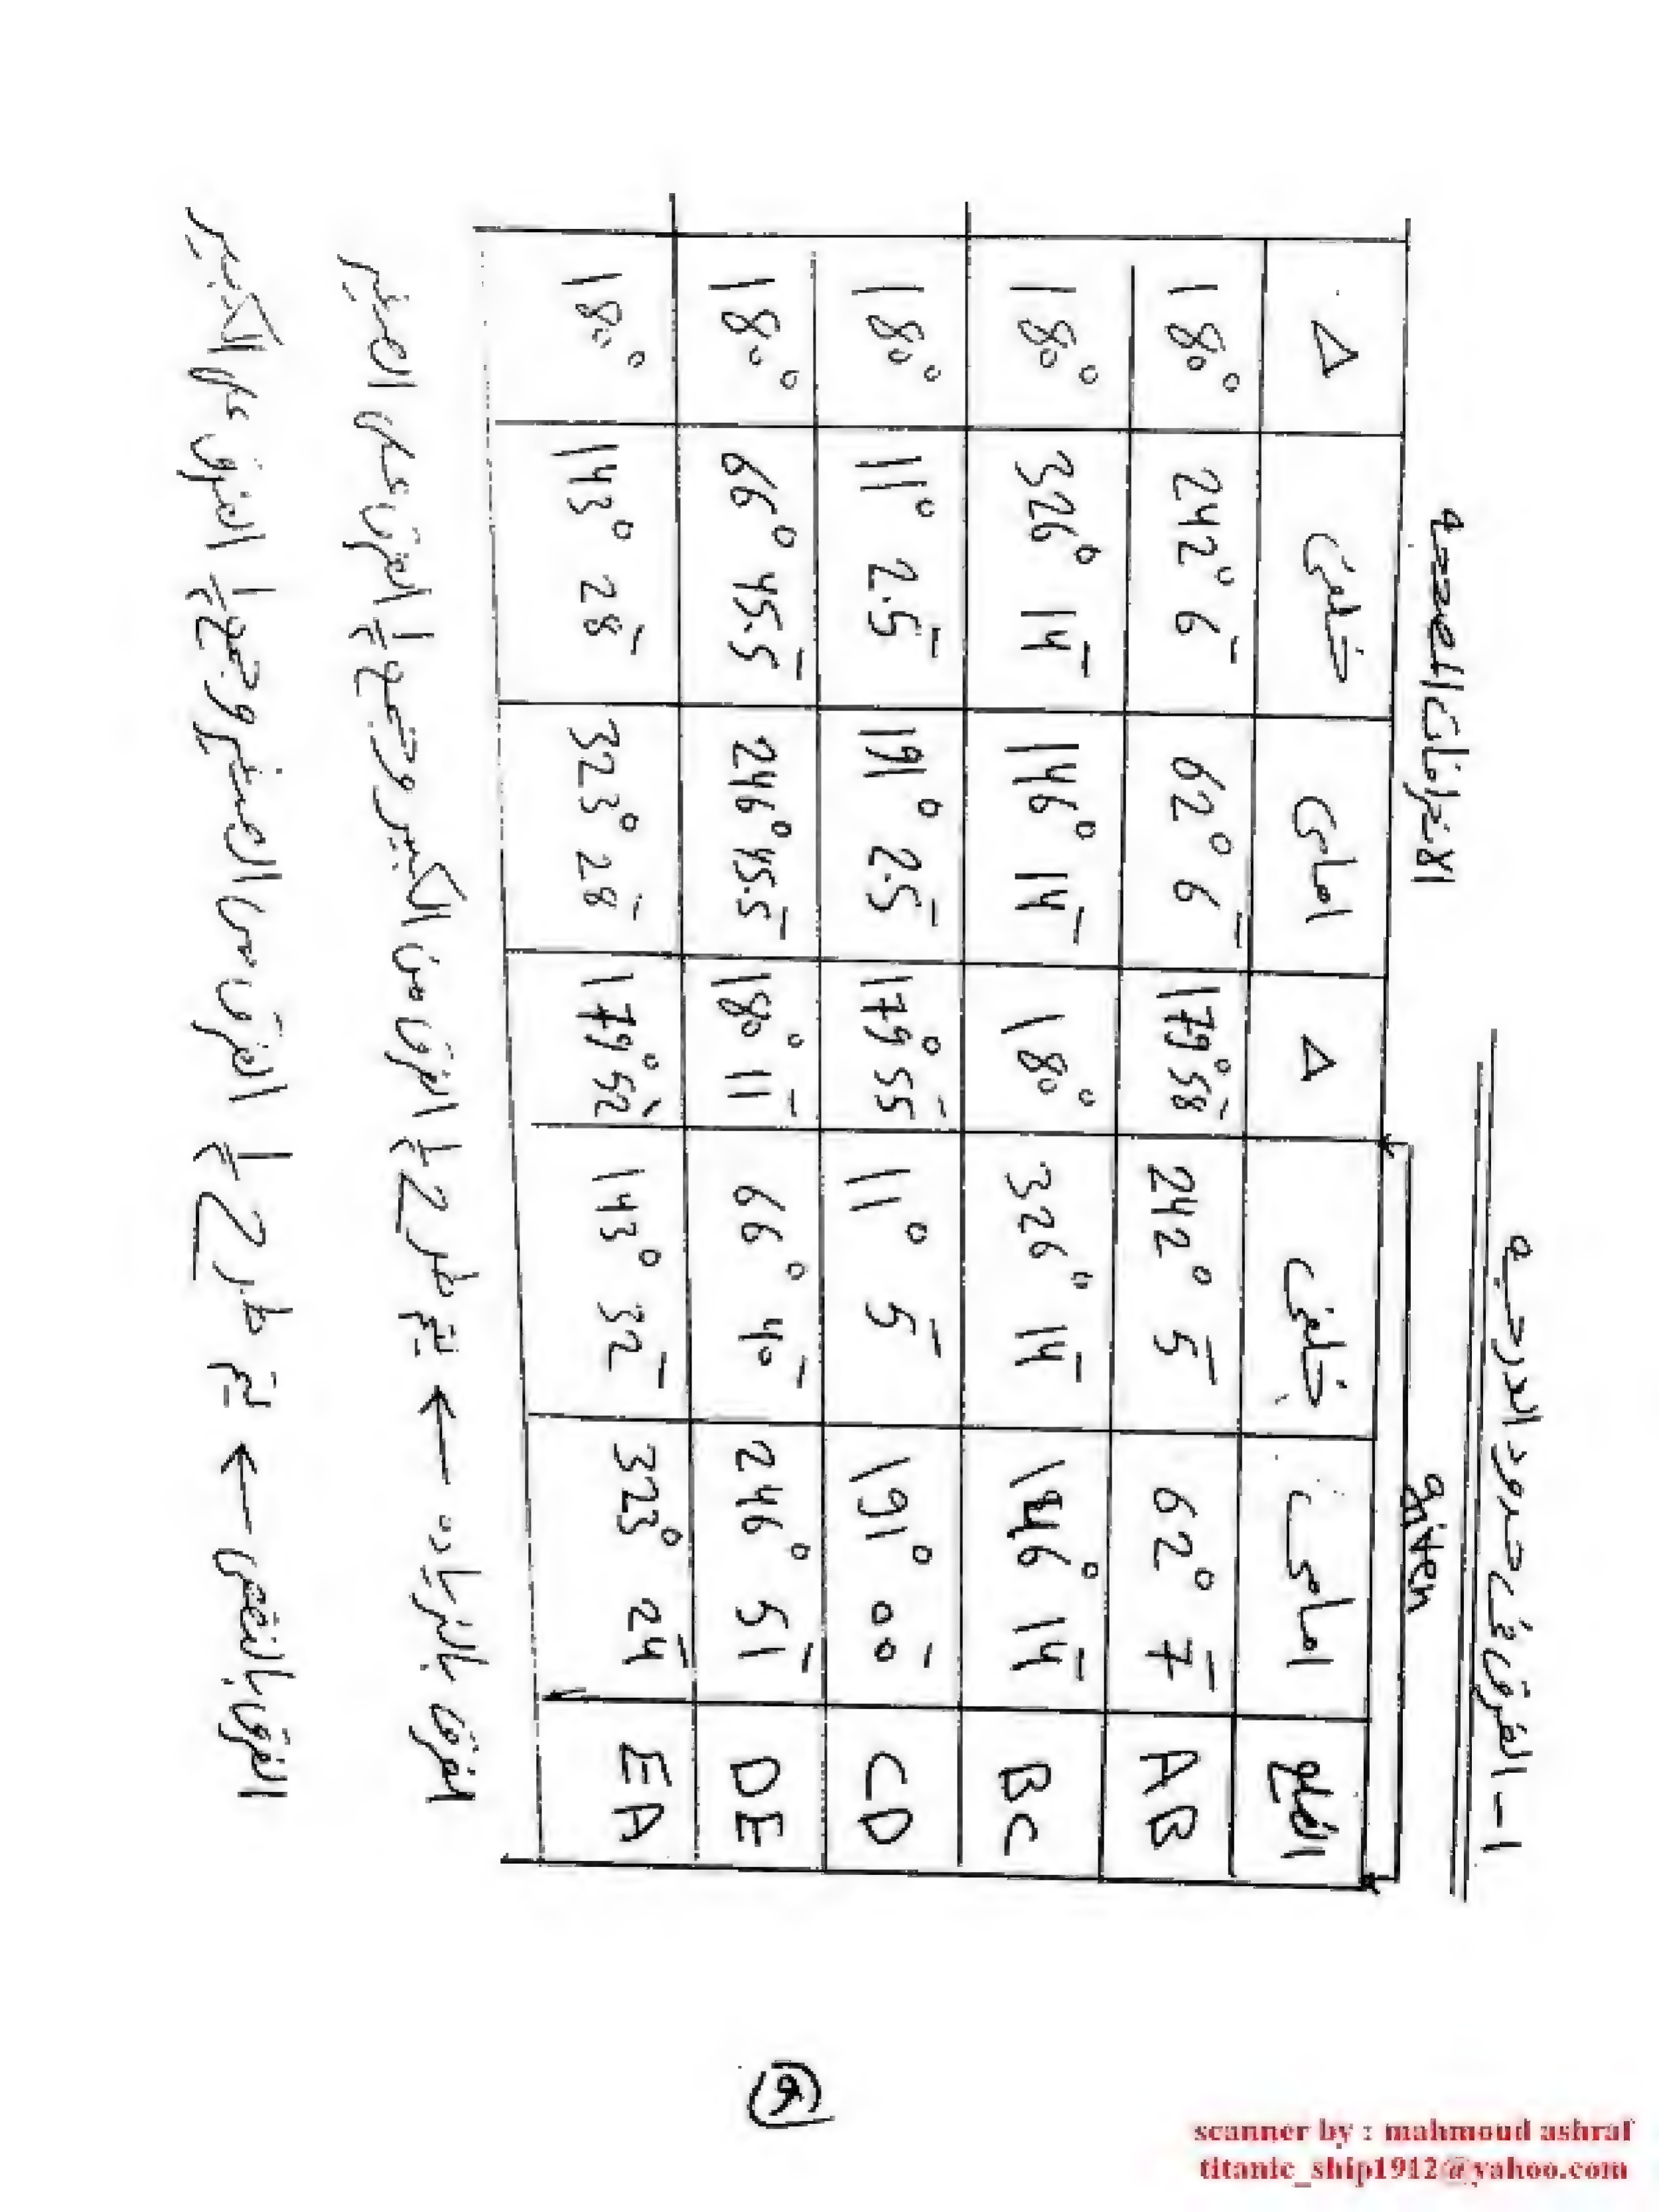 ١- الفرق في حدود الدرجة
given
الانحرافات المصححة
الضلع امامى خلفى Δ امامى خلفى Δ
AB 62° 7' 242° 5' 179° 58' 62° 6' 242° 6' 180°
BC 146° 14' 326° 14' 180° 146° 14' 326° 14' 180°
CD 191° 00' 11° 5' 179° 55' 191° 2.5' 11° 2.5' 180°
DE 246° 51' 66° 40' 180° 11' 246° 45.5' 66° 45.5' 180°
EA 323° 24' 143° 32' 179° 52' 323° 28' 143° 28' 180°
الفرق بالزيادة ← يتم طرح ½ الفرق من الكبير وجمع ½ الفرق على الصغير
الفرق بالنقص ← يتم طرح ½ الفرق من الصغير وجمع ½ الفرق على الكبير
scanner by : mahmoud ashraf
titanic_ship1912@yahoo.com